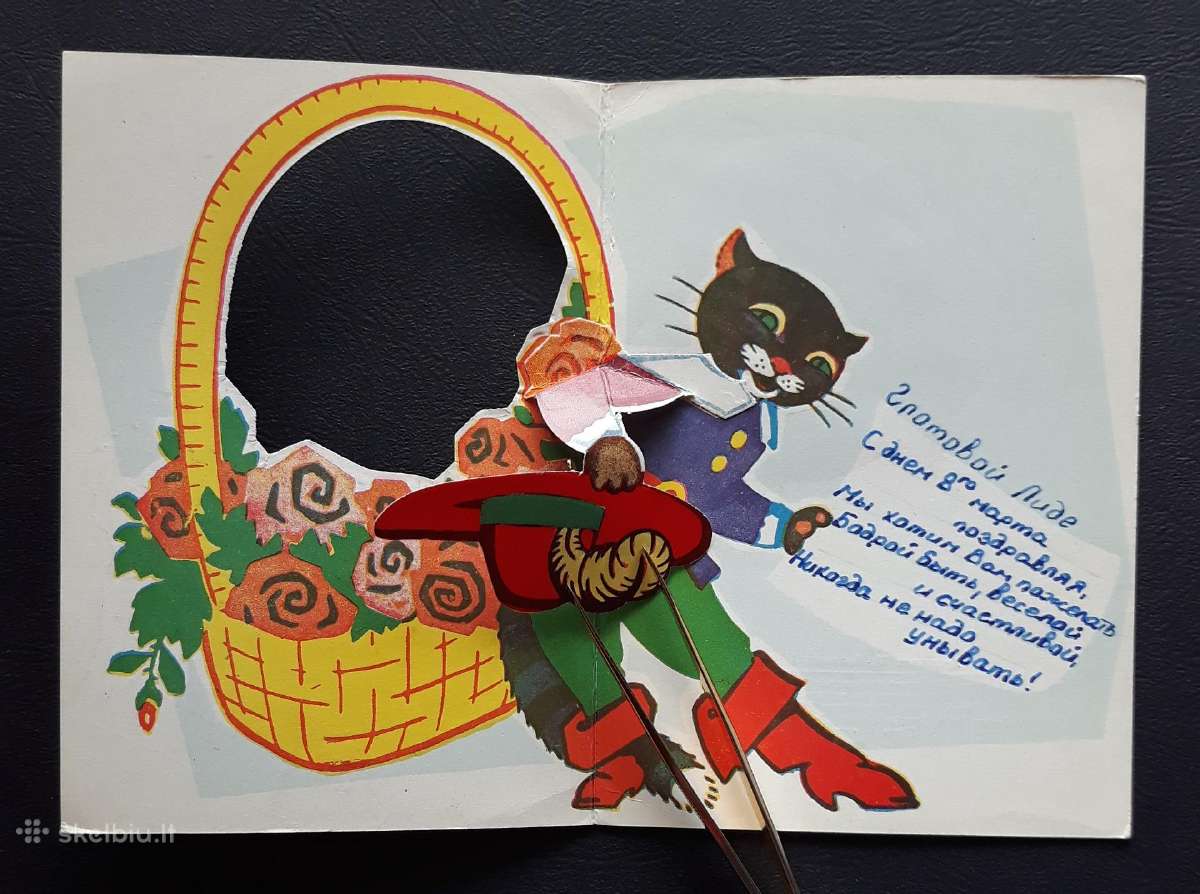 Глотовой Лиде
С днем 8го марта
поздравляя,
Мы хотим Вам пожелать
Бодрой быть, веселой
и счастливой,
Никогда не надо
унывать!
skelbiu.lt